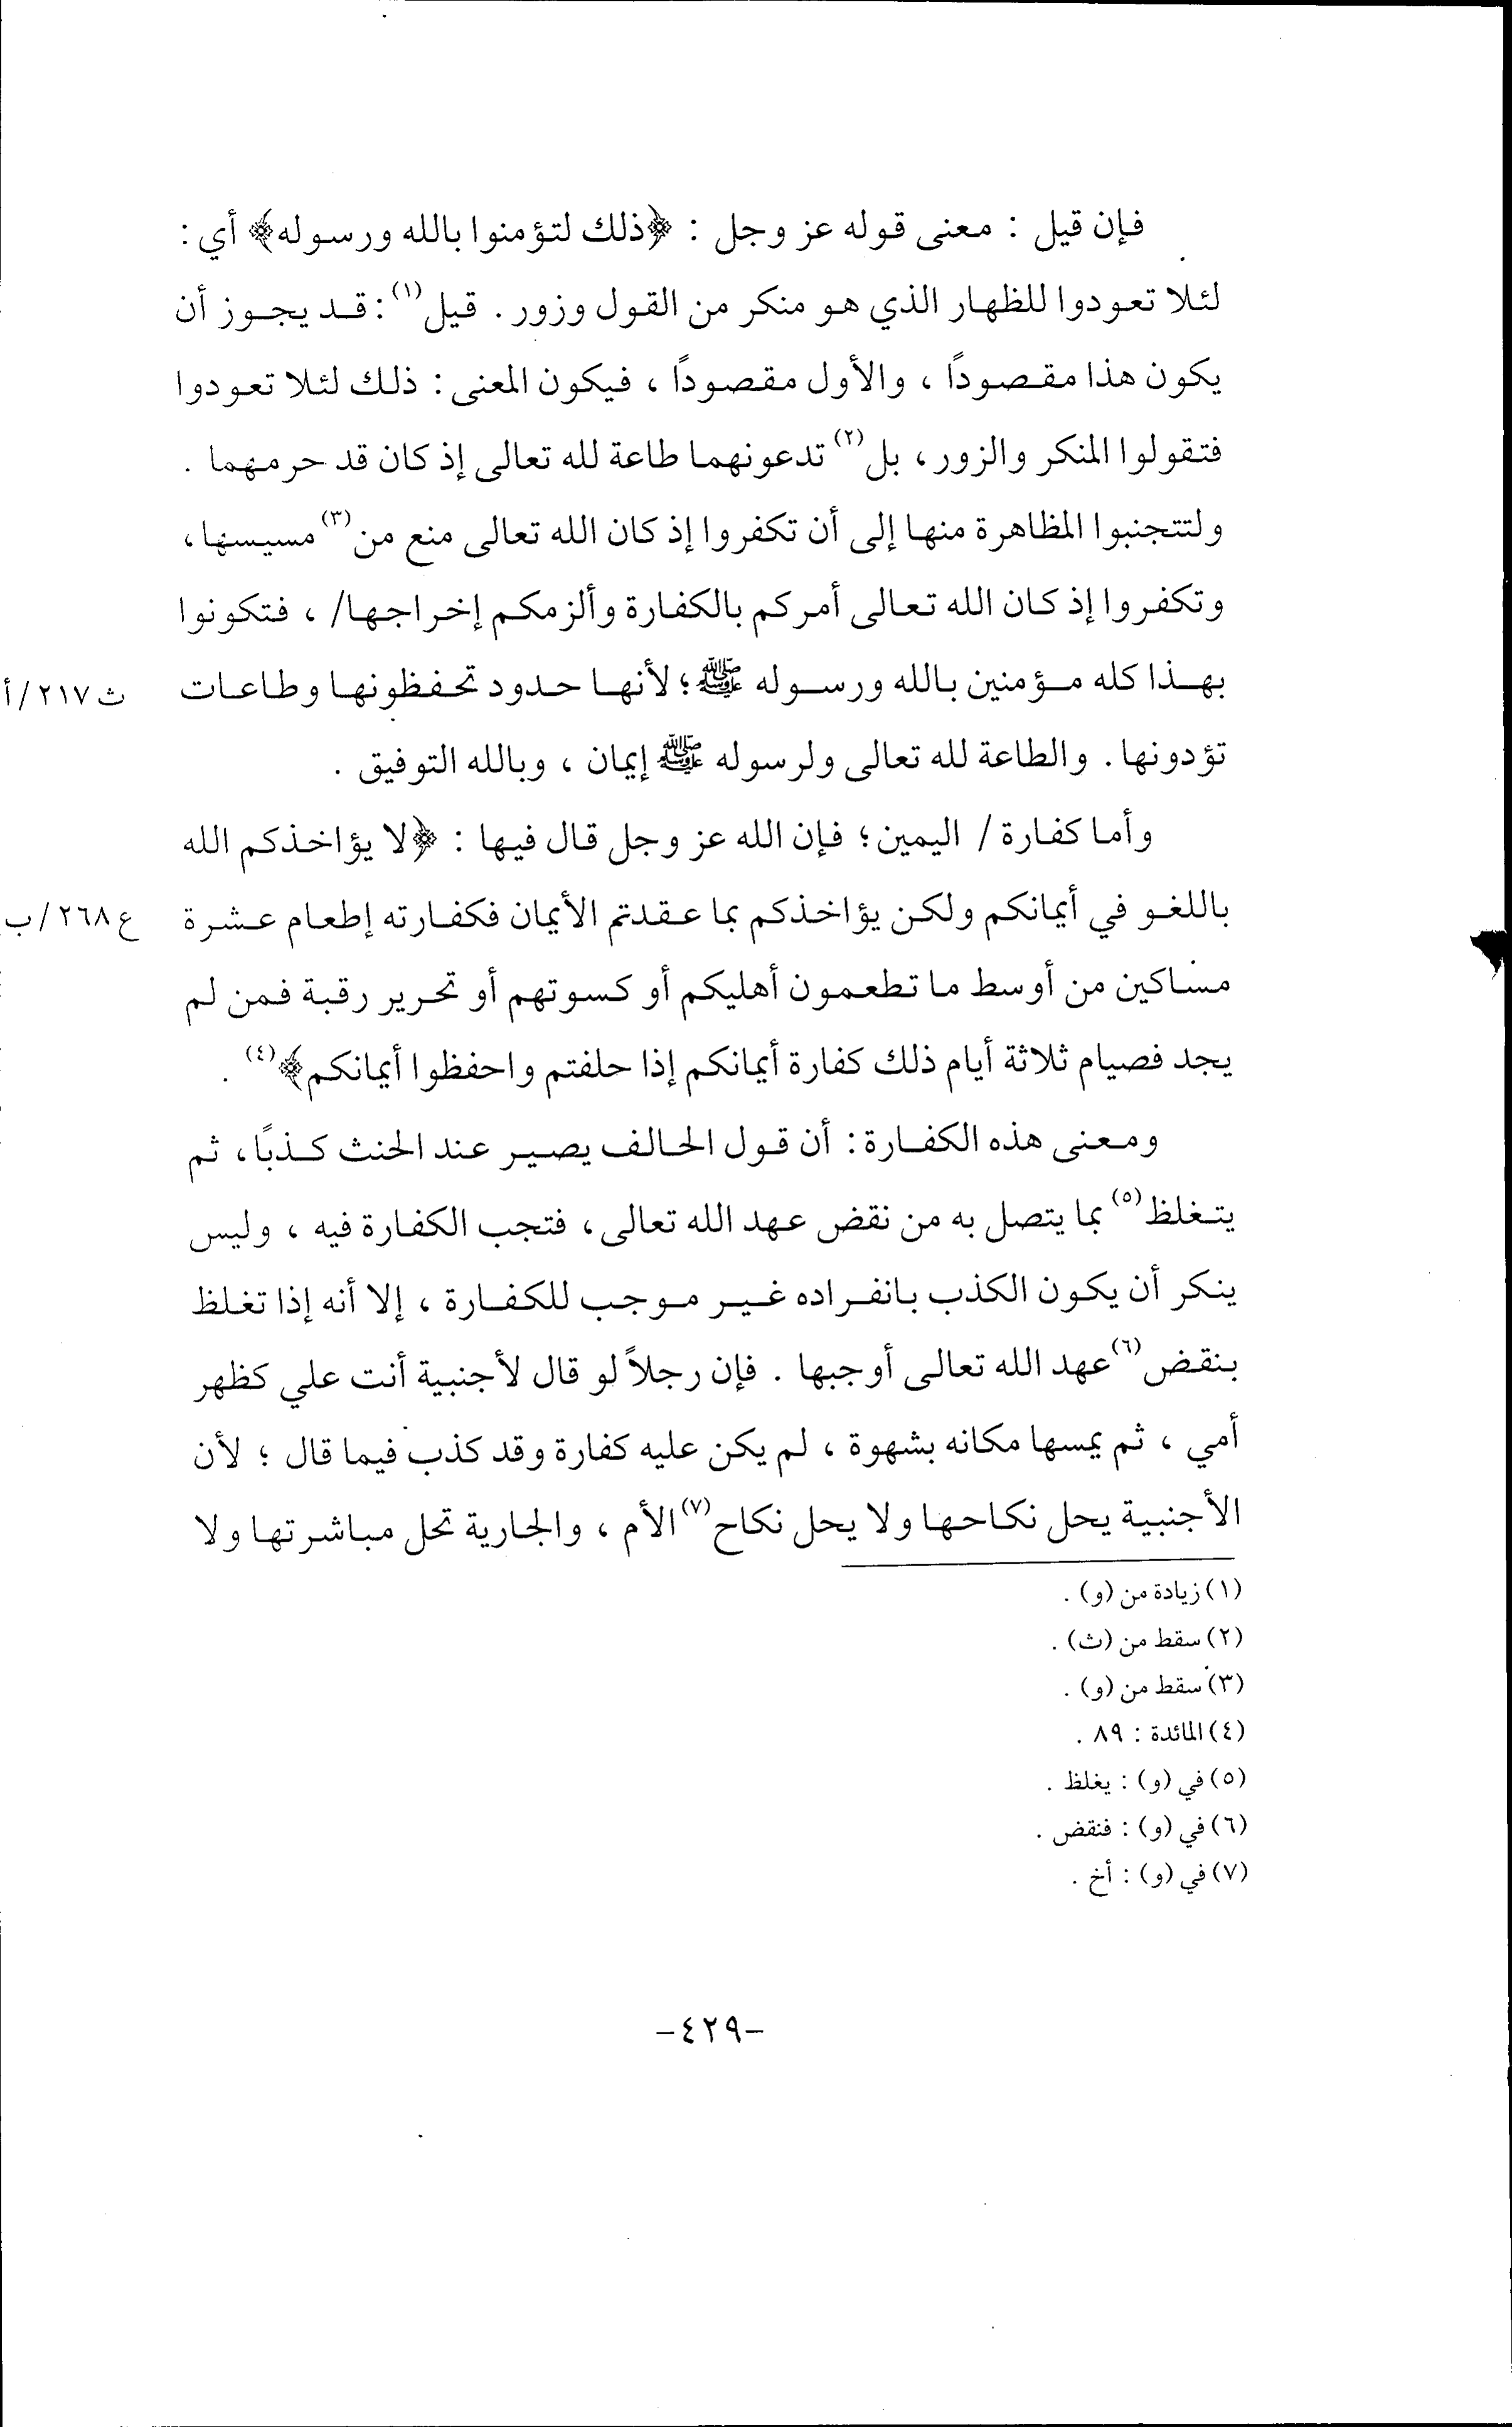 فإن قيل : معنى قوله عز وجل : ﴿ذلك لتؤمنوا بالله ورسوله﴾ أي :
لئلا تعودوا للظهار الذي هو منكر من القول وزور . قيل(١) : قد يجوز أن
يكون هذا مقصودًا ، والأول مقصودًا ، فيكون المعنى : ذلك لئلا تعودوا
فتقولوا المنكر والزور ، بل(٢) تدعونهما طاعة لله تعالى إذ كان قد حرمهما .
ولتتجنبوا المظاهرة منها إلى أن تكفروا إذ كان الله تعالى منع من(٣) مسيسها ،
وتكفروا إذ كان الله تعالى أمركم بالكفارة وألزمكم إخراجها/ ، فتكونوا
بهذا كله مؤمنين بالله ورسوله ﷺ ؛ لأنها حدود تحفظونها وطاعات
ث ٢١٧/أ
تؤدونها . والطاعة لله تعالى ولرسوله ﷺ إيمان ، وبالله التوفيق .
وأما كفارة / اليمين ؛ فإن الله عز وجل قال فيها : ﴿لا يؤاخذكم الله
باللغو في أيمانكم ولكن يؤاخذكم بما عقدتم الأيمان فكفارته إطعام عشرة
ع ٢٦٨/ب
مساكين من أوسط ما تطعمون أهليكم أو كسوتهم أو تحرير رقبة فمن لم
يجد فصيام ثلاثة أيام ذلك كفارة أيمانكم إذا حلفتم واحفظوا أيمانكم﴾(٤) .
ومعنى هذه الكفارة : أن قول الحالف يصير عند الحنث كذبًا ، ثم
يتغلظ(٥) بما يتصل به من نقض عهد الله تعالى ، فتجب الكفارة فيه ، وليس
ينكر أن يكون الكذب بانفراده غير موجب للكفارة ، إلا أنه إذا تغلظ
بنقض(٦) عهد الله تعالى أوجبها . فإن رجلاً لو قال لأجنبية أنت علي كظهر
أمي ، ثم يمسها مكانه بشهوة ، لم يكن عليه كفارة وقد كذب فيما قال ؛ لأن
الأجنبية يحل نكاحها ولا يحل نكاح(٧) الأم ، والجارية تحل مباشرتها ولا
(١) زيادة من (و) .
(٢) سقط من (ث) .
(٣) سقط من (و) .
(٤) المائدة : ٨٩ .
(٥) في (و) : يغلظ .
(٦) في (و) : فنقض .
(٧) في (و) : أخ .
-٤٢٩-